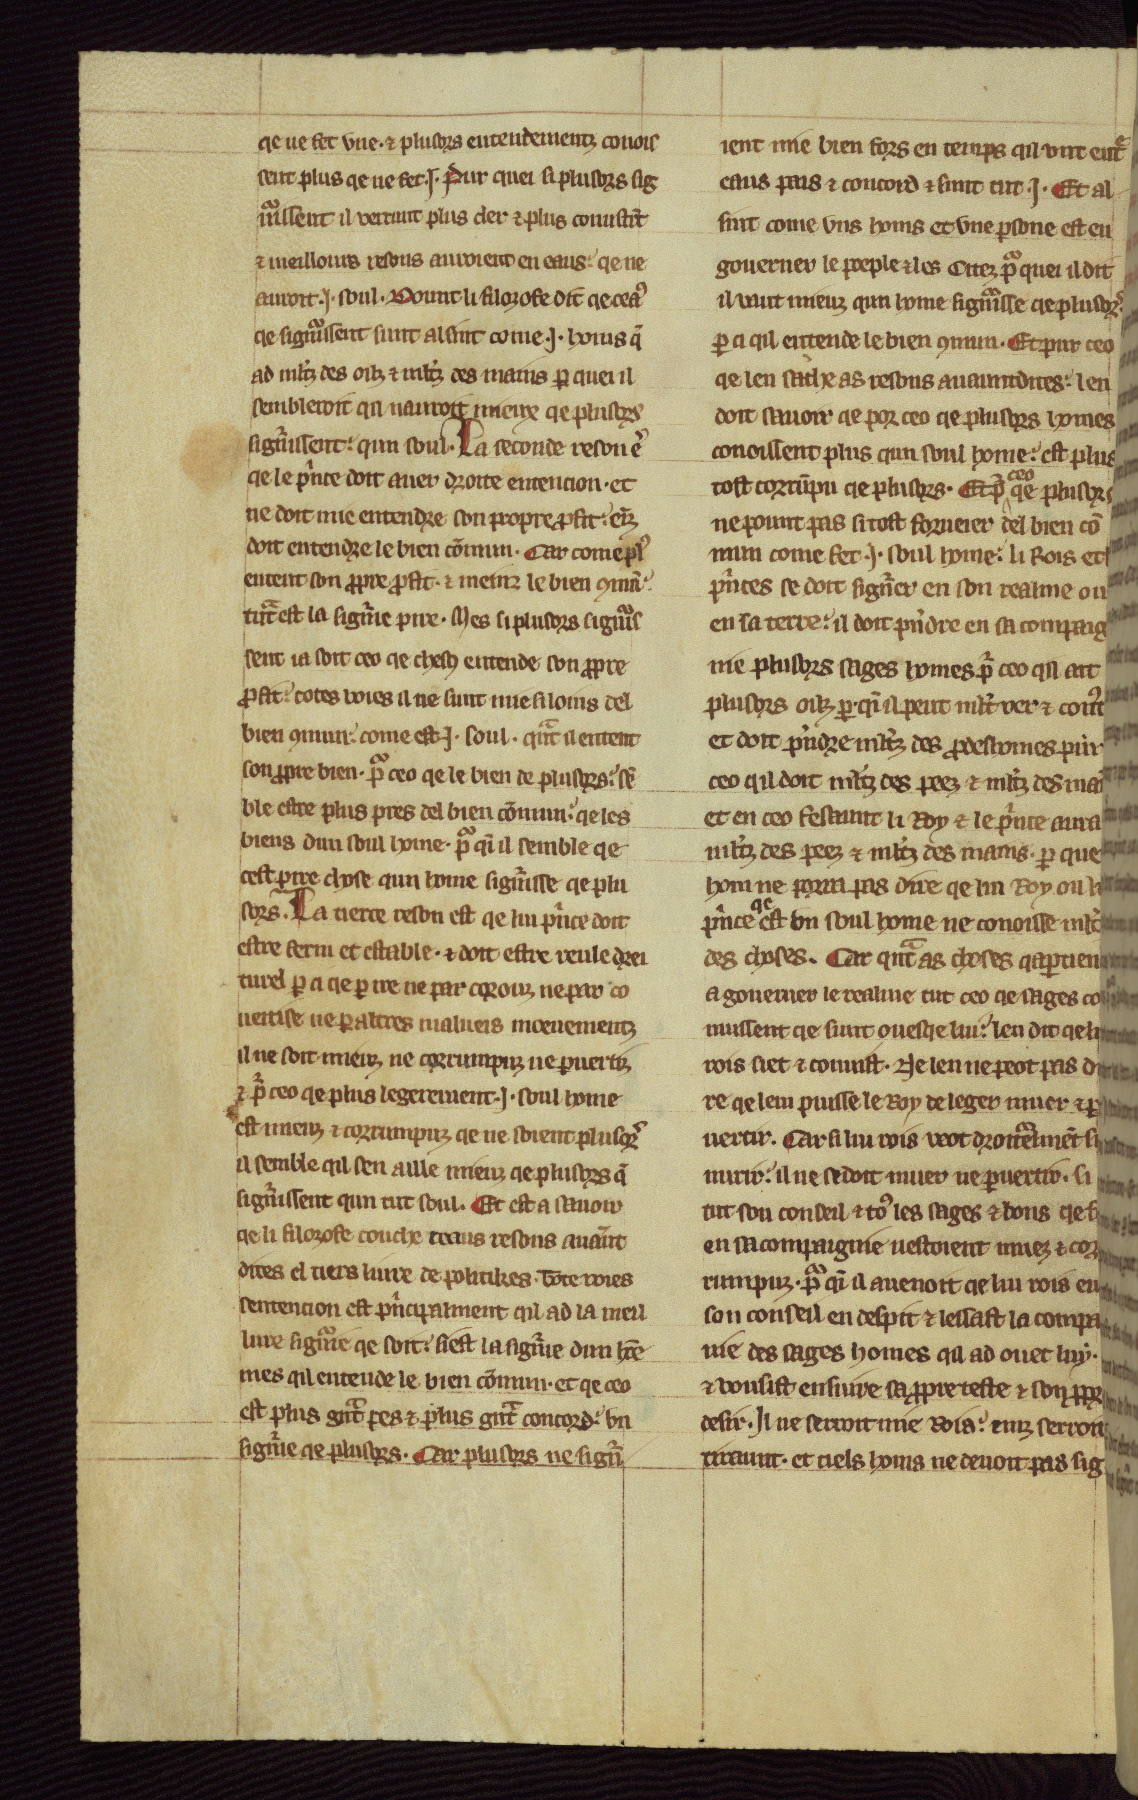 qe ne fet vne. ⁊ plusors entendementz conois
sent plus qe ne fet .j. Pur quei si plusors sig
nissent il verrunt plus cler ⁊ plus
⁊ meillours resons auroient en eaus: qe ne
auroit .j. soul. Dount li filozofe dit qe
qe signissent sunt alsint come .j. homs q̄
ad mltz des oilz ⁊ mltz des mains p̲ quei il
sembleroit qil vauroit mieux qe plusors
signissent: qun soul. La seconde reson ē
qe le p̄nce doit auer droite entencion. et
ne doit mie entendre son propre ꝓfit: einz
doit entendre le bien cōmun. Car come pl᾽
entent son ꝓpre ꝓfit. ⁊ meinz le bien ꝯmū:
tāt est la signīe pire. Mes si plusors signis
sent ia soit ceo qe chesq entende son ꝓpre
ꝓfit: totes voies il ne sunt mie si loins del
bien ꝯmun: come est .j. soul. qāt il entent
son ꝓpre bien. pᵃ ceo qe le bien de plusors: sē
ble estre plus pres del bien cōmun: qe les
biens dun soul home. pᵃ qī il semble qe
cest pire chose qun home signisse qe plu
sors. La tierce reson est qe lui p̄nce doit
estre ferm et estable. ⁊ doit estre reule drei
turel p̲ ci qe p̲ ire ne par corouz ne par co
ueitise ne p̲ altres malueis moeuementz
il ne soit muez ne corrumpuz ne p̲uertiz
⁊ p̄ ceo qe plus legerement .j. soul home
est muez ⁊ corrumpuz qe ne soient plusors
il semble qil sen aille mieuz qe plusors q̄
signissent qun tut soul. Et est a sauoir
qe li filozofe touche ceaus resons auāt
dites el tiers liure de politikes. Tote voies
sentencion est p̄ncipalment qil ad la meil
lure signīe qe soit: si est la signīe dun home
mes qil entende le bien cōmun. et qe ceo
est plus gāt pes ⁊ plus gāt concord: vn
signīe qe plusors. Car plusors ne signī
ient mie bien fors en temps qil vnt ent᾽
eaus pais ⁊ concord ⁊ sunt tut .j. Et al
sint come vns homs et vne p̲sone est en
gouerner le poeple ⁊ les Citez pᵃ quei il dit
il vaut mieuz qun home signisse qe plusors:
p̲ ci qil entende le bien ꝯmun. Et pur ceo
qe len sache as resons auauntdites: len
doit sauoir qe por ceo qe plusors homes
conoissent plus qun soul home: est plus
tost corrūpu qe plusors. Et p̄ ceo qe plusors
ne pount pas si tost forueier del bien cō
mun come fet .j. soul home: li Rois et
p̄nces se doit signīer en son realme ou
en sa terre: il doit p̄ndre en sa compaig
nie plusors sages homes p̄ ceo qil ait
plusors oilz p̲ qī il peut mlt ver ⁊ conīt
et doit p̄ndre mltz des ꝓdeshomes pur
ceo qil doit mltz des peez ⁊ mltz des mai
et en ceo fesaunt li Roy ⁊ le p̄nce aura
mltz des peez ⁊ mltz des mains. p̲ que
hom ne porra pas dire qe lui Roy ou li
p̄nce qe est vn soul home ne conoisse mlt
des choses. Car qāt as choses qap̲tien
a gouerner le realme tut ceo qe sages co
nuissent qe sunt ouesqe lui: len dit qe li
rois siet ⁊ conuist. Ne len ne peot pas di
re qe lem puisse le Roy de leger muer ⁊ p̲
uertir. Car si lui rois veot droitelmēt si
nurir: il ne se doit muer ne p̲uertir. si
tut son conseil ⁊ to᾽ les sages ⁊ bons qe s
en sa compaignie nestoient muez ⁊ cor
rumpuz. pᵃ qī il auenoit qe lui rois eu
son conseil en despit ⁊ lessast la compa
nie des sages homes qil ad ouet luy.
⁊ vousist ensiure sa ꝓpre teste ⁊ son ꝓpr
desir. Il ne serroit mie Rois: einz serroit
tiraunt. et tiels homs ne deuoit pas sig